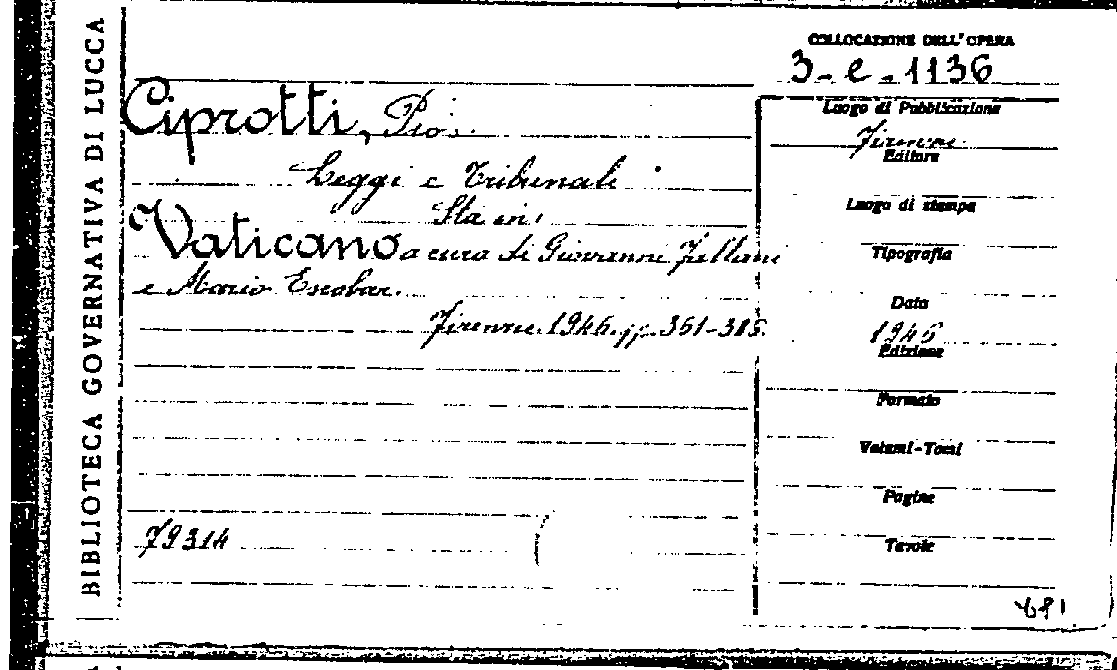 BIBLIOTECA GOVERNATIVA DI LUCCA
COLLOCAZIONE DELL'OPERA
3-e-1136
Ciprotti, Pio.
Leggi e Tribunali
Sta in:
Vaticano a cura di Giovanni Fallani
e Mario Escobar.
Firenze. 1946. pp. 351-
79314
Luogo di Pubblicazione
Firenze
Editore
Luogo di stampa
Tipografia
Data
1946
Edizione
Formato
Volumi-Tomi
Pagine
Tavole